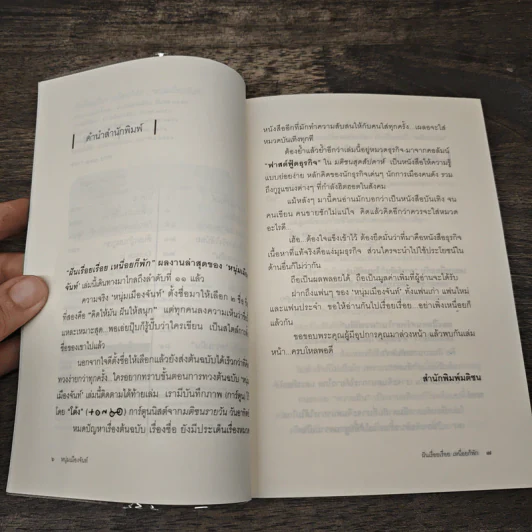 คำนำสำนักพิมพ์
"ฝันเรื่อยเรื่อย เหนื่อยก็พัก" ผลงานล่าสุดของ 'หนุ่มเมือง
จันท์' เล่มนี้เดินทางมาไกลถึงลำดับที่ ๑๑ แล้ว
ความจริง 'หนุ่มเมืองจันท์' ตั้งชื่อมาให้เลือก ๒ ชื่อ
ที่สองคือ "คิดให้มัน ฝันให้สนุก" แต่ทุกคนลงความเห็น
แหละเหมาะสุด...พอเอ่ยปุ๊บก็รู้ปั๊บว่าใครเขียน เป็นสไตล์
ชื่อของเขาไปแล้ว
นอกจากใจดีตั้งชื่อให้เลือกแล้วยังส่งต้นฉบับได้เร็วกว่า
ทวงง่ายกว่าทุกครั้ง...ใครอยากทราบขั้นตอนการทวงต้นฉบับ
เมืองจันท์' เล่มนี้ติดตามได้ท้ายเล่ม เรามีบันทึกภาพ (การ์ตูน)
โดย "โต้ง" การ์ตูนนิสต์จากมติชนรายวัน
หมดปัญหาเรื่องต้นฉบับ เรื่องชื่อ ยังมีประเด็นเรื่อง
๖ หนุ่มเมืองจันท์
หนังสืออีกที่มักทำความสับสนให้กับคนใส่ทุกครั้ง...เผลอจะใส่
หมวดบันเทิงทุกที
ต้องย้ำแล้วย้ำอีกว่าเล่มนี้อยู่หมวดธุรกิจ-มาจากคอลัมน์
"ฟาสต์ฟู้ดธุรกิจ" ใน มติชนสุดสัปดาห์ เป็นหนังสือให้ความรู้
แบบย่อยง่าย หลักคิดของนักธุรกิจเด่นๆ นักการเมืองคนดัง รวม
ถึงกูรูแขนงต่างๆ ที่กำลังฮิตฮอตในสังคม
แม้หลังๆ มานี้คนอ่านมักบอกว่าเป็นหนังสือบันเทิง จน
คนเขียน คนขายชักไม่แน่ใจ คิดแล้วคิดอีกว่าควรจะใส่หมวด
อะไรดี...
เฮ้อ...ต้องใจแข็งเข้าไว้ ต้องยึดมั่นว่าที่มาคือหนังสือธุรกิจ
เนื้อหาที่แท้จริงคือแง่มุมธุรกิจ ส่วนใครจะนำไปใช้ประโยชน์ใน
ด้านอื่นก็ไม่ว่ากัน
ถือเป็นผลพลอยได้ ถือเป็นมูลค่าเพิ่มที่ผู้อ่านจะได้รับ
ฝากถึงแฟนๆ ของ 'หนุ่มเมืองจันท์' ทั้งแฟนเก่า แฟนใหม่
และแฟนประจำ ขอให้อ่านกันไปเรื่อยเรื่อย...อย่าเพิ่งเหนื่อยก็
แล้วกัน
ขอขอบพระคุณผู้มีอุปการคุณมาล่วงหน้า แล้วพบกันเล่ม
หน้า...ครบโหลพอดี
สำนักพิมพ์มติชน
ฝันเรื่อยเรื่อย เหนื่อยก็พัก ๗